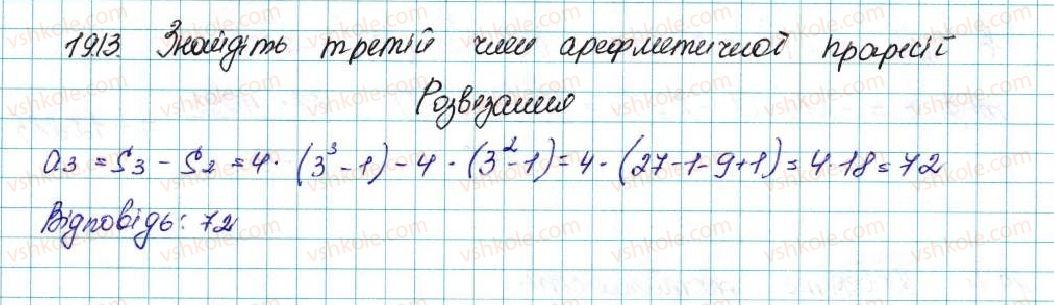 1913. Знайдіть третій член арефметичної прогресії
Розвезання
a₃ = S₃ - S₂ = 4 · (3³ - 1) - 4 · (3² - 1) = 4 · (27 - 1 - 9 + 1) = 4 · 18 = 72
Відповідь: 72